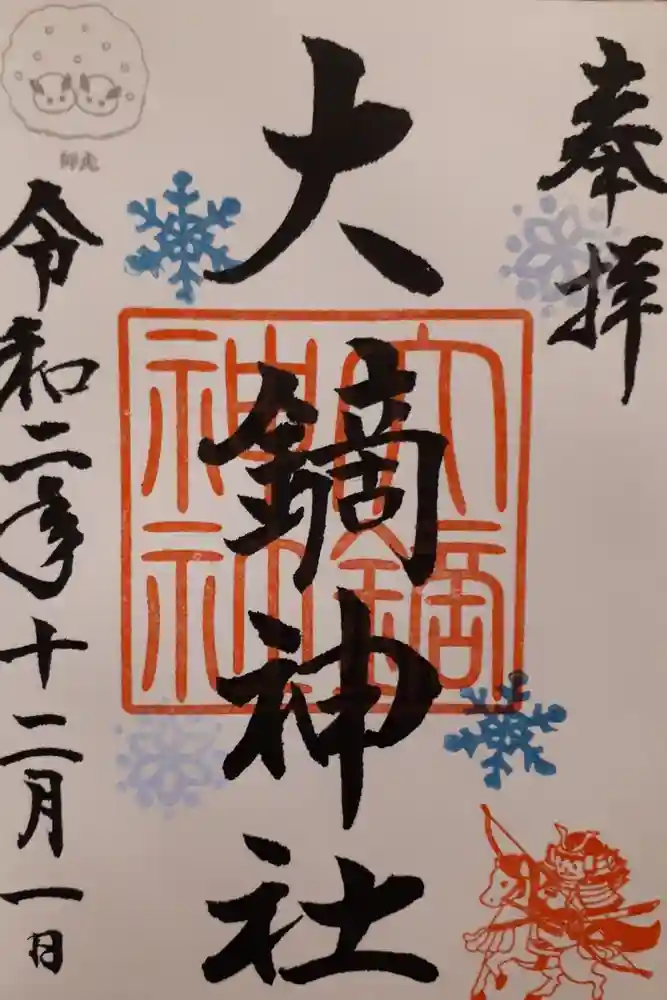 奉拝
大鏑神社
大鏑神社
令和二年十二月一日
師走